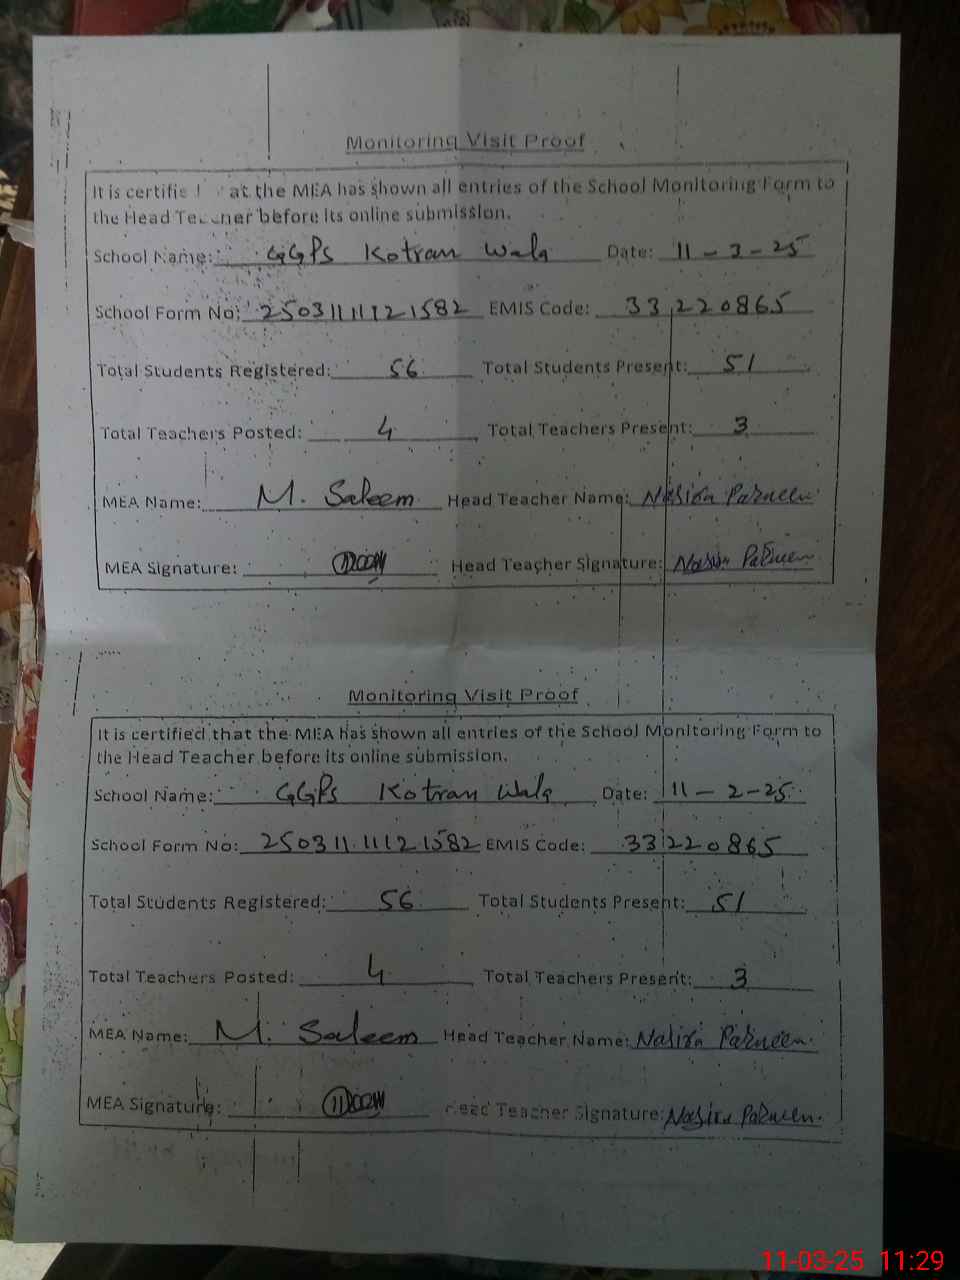 Monitoring Visit Proof
It is certified that the MEA has shown all entries of the School Monitoring Form to
the Head Teacher before its online submission.
School Name: GGPS Kotran Wala Date: 11-3-25
School Form No: 25031111121582 EMIS Code: 33220865
Total Students Registered: 56 Total Students Present: 51
Total Teachers Posted: 4 Total Teachers Present: 3
MEA Name: M. Saleem Head Teacher Name: Nasira Parveen
MEA Signature: Head Teacher Signature: Nasira Parveen
Monitoring Visit Proof
It is certified that the MEA has shown all entries of the School Monitoring Form to
the Head Teacher before its online submission.
School Name: GGPS Kotran Wala Date: 11-2-25
School Form No: 25031111121582 EMIS Code: 33220865
Total Students Registered: 56 Total Students Present: 51
Total Teachers Posted: 4 Total Teachers Present: 3
MEA Name: M. Saleem Head Teacher Name: Nasira Parveen
MEA Signature: Head Teacher Signature: Nasira Parveen
11-03-25 11:29